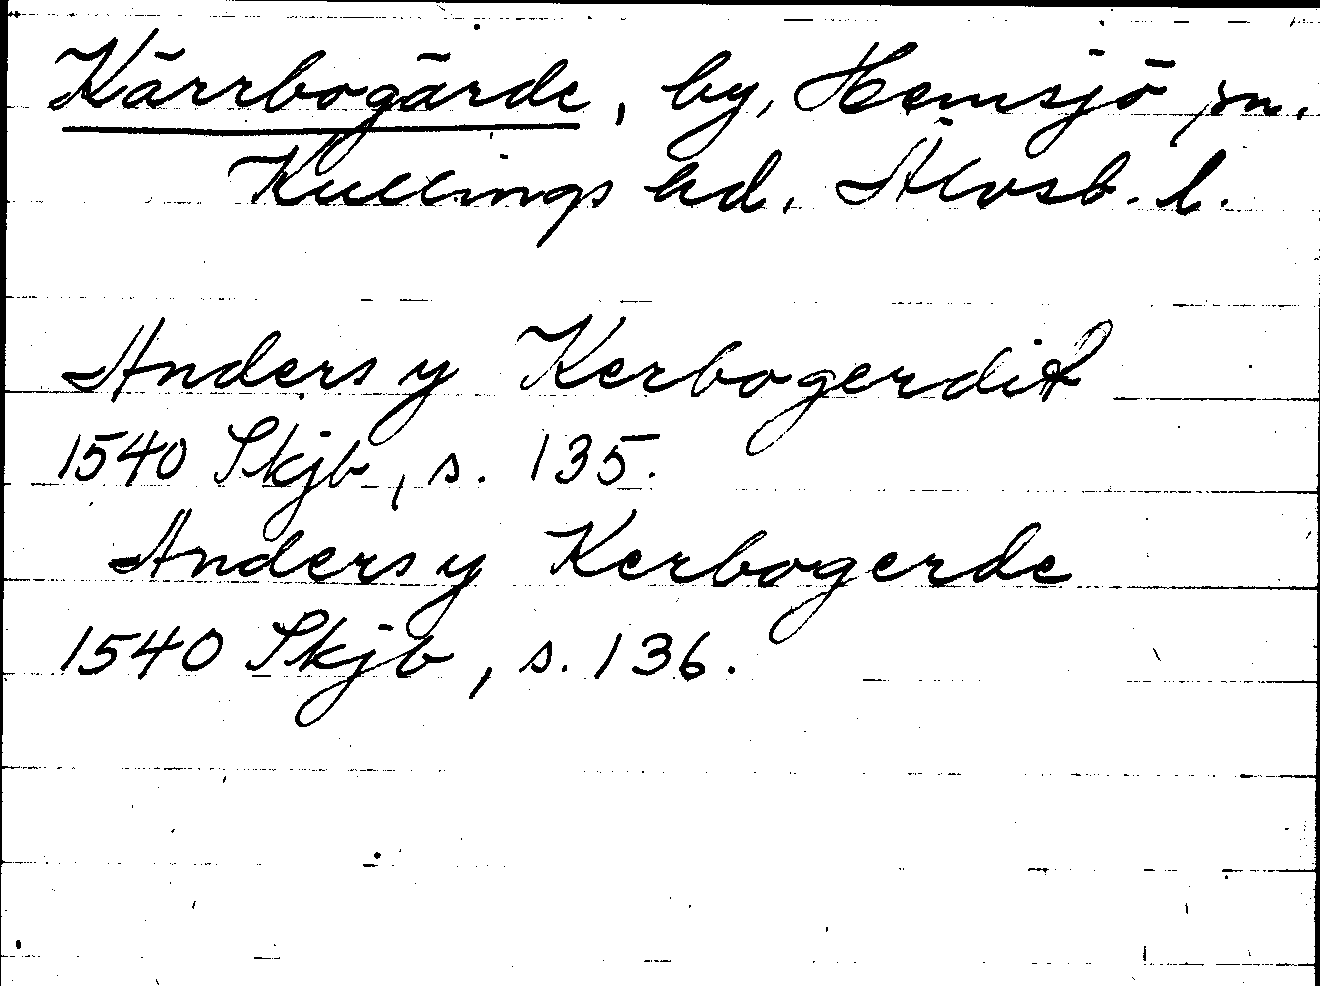 Kärrbogärde, by, Hemsjö sn.
Kullings hd. Älvsb. l.
Anders y Kerbogerdit
1540 Skjb, s. 135.
Anders y Kerbogerde
1540 Skjb, s. 136.